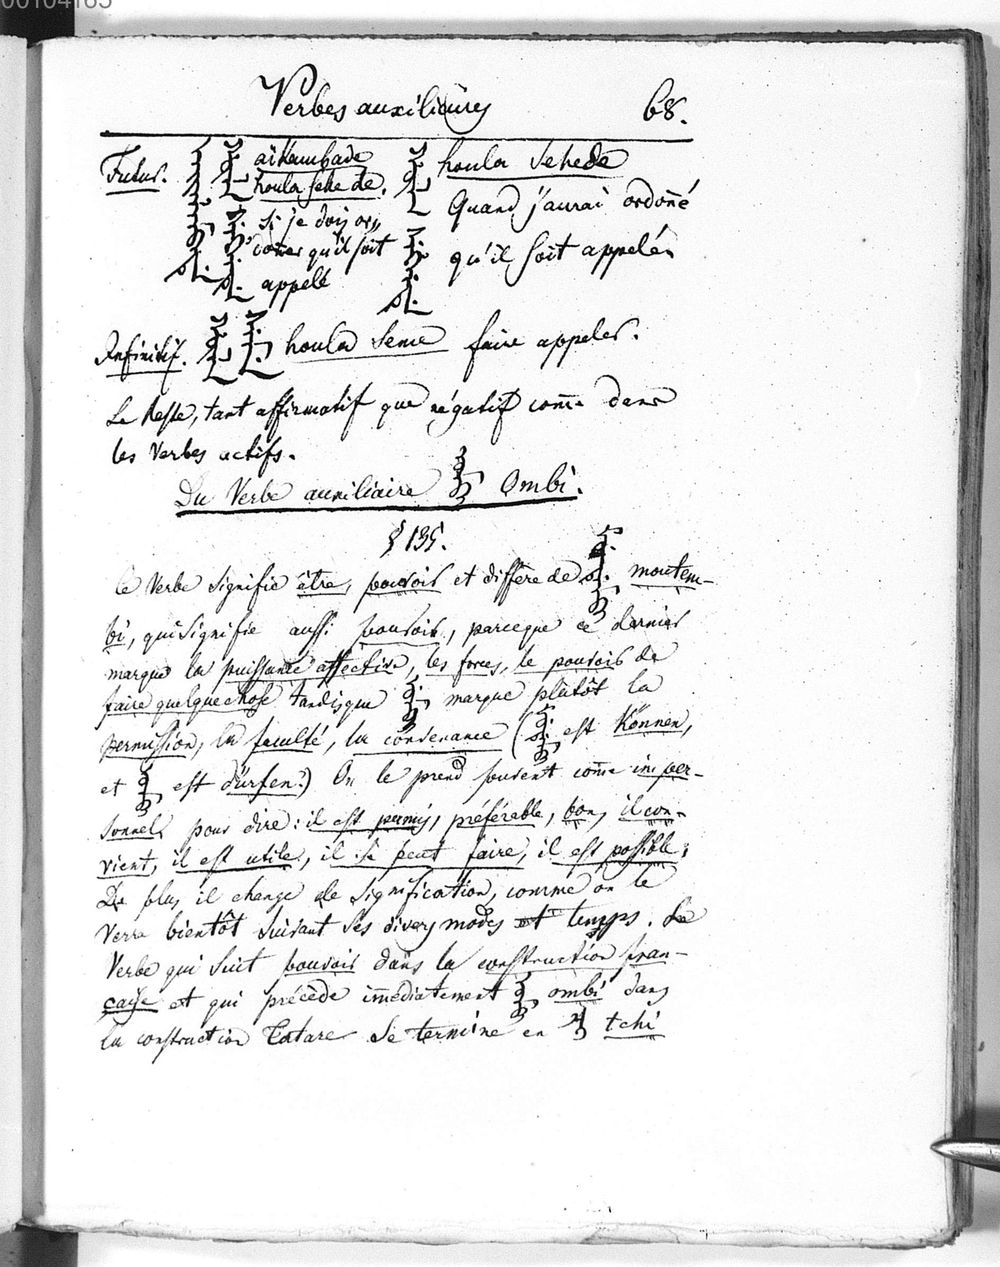 00104165
Verbes auxiliaires 68.
Futur. aikambade houla sehede
houla sehe de. Quand j'aurai ordoné
si je dois or„
doner qu'il soit qu'il soit appelér
appelé
Infinitif. houla seme faire appeler.
Le Reste, tant affirmatif que négatif come dans
les Verbes actifs.
Du Verbe auxiliaire ombi.
§ 135.
Ce Verbe signifie être, pouvoir et diffère de moutem-
bi, qui signifie aussi pouvoir, parceque ce dernier
marque la puissance affective, les forces, le pouvoir de
faire quelque chose tandisque marque plûtôt la
permission, la faculté, la convenance ( est Können,
et est dürfen.) On le prend souvent come imper-
sonnel pour dire: il est permis, préférable, bon, il con-
vient, il est utile, il se peut faire, il est possible;
De plus il change de signification, comme on le
verra bientôt suivant ses divers modes et temps. Le
Verbe qui suit pouvoir dans la construction fran-
çaise et qui précède imédiatement ombi dans
la construction Tatare se termine en tchi